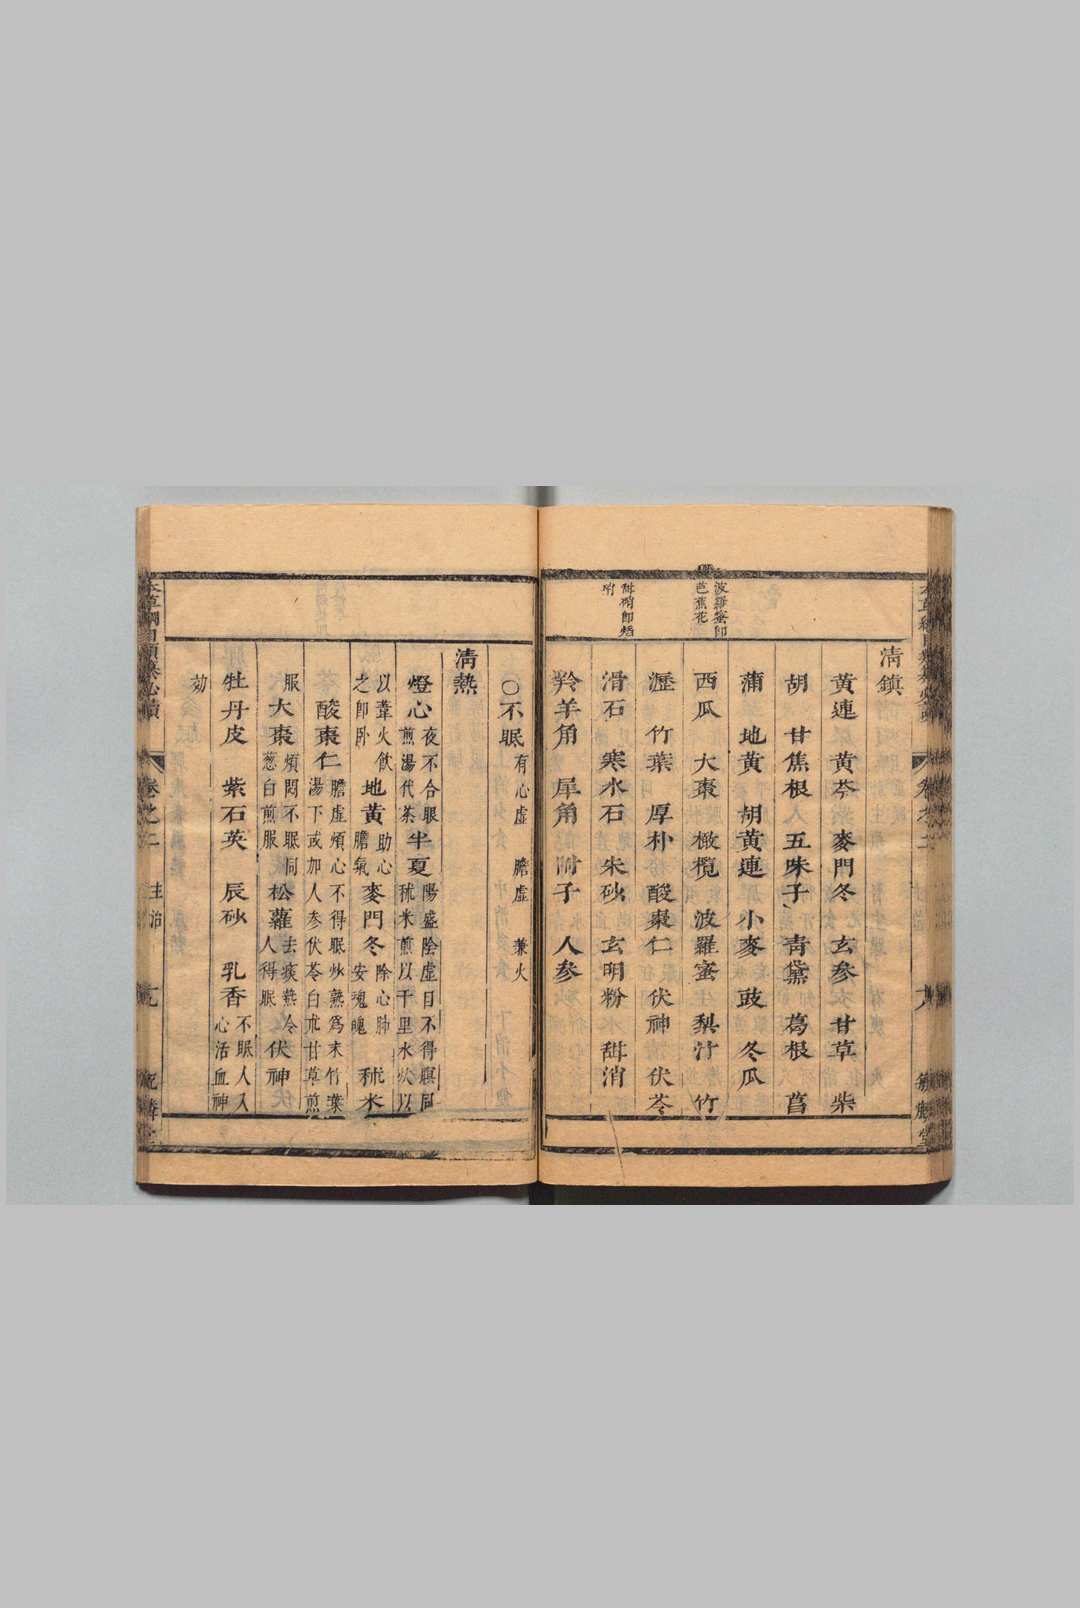 波羅蜜即
芭蕉花
甜硝即焰
硝
清鎮
黃連　黃芩　麥門冬　玄參　甘草　柴
胡　甘焦根　人　五味子　青黛　葛根　菖
蒲　地黃　胡黃連　小麥　豉　冬瓜
西瓜　大棗　橄欖　波羅蜜　梨汁　竹
瀝　竹葉　厚朴　酸棗仁　伏神　伏苓
滑石　寒水石　朱砂　玄明粉　甜消
羚羊角　犀角　附子　人參
○不眠有心虛　膽虛　兼火
清熱
燈心夜不合眼煎湯代茶半夏陽盛陰虛目不得瞑同秫米煎以千里水炊以
以葦火飲之即卧地黃助心膽氣麥門冬除心肺安魂魄秫米
酸棗仁膽虛煩心不得眠炒熟為末竹葉湯下或加人參伏苓白朮甘草煎
服大棗煩悶不眠同葱白煎服松蘿去痰熱令人得眠伏神
牡丹皮　紫石英　辰砂　乳香不眠人入心活血神
効
本草綱目類纂必讀
卷之二
主治